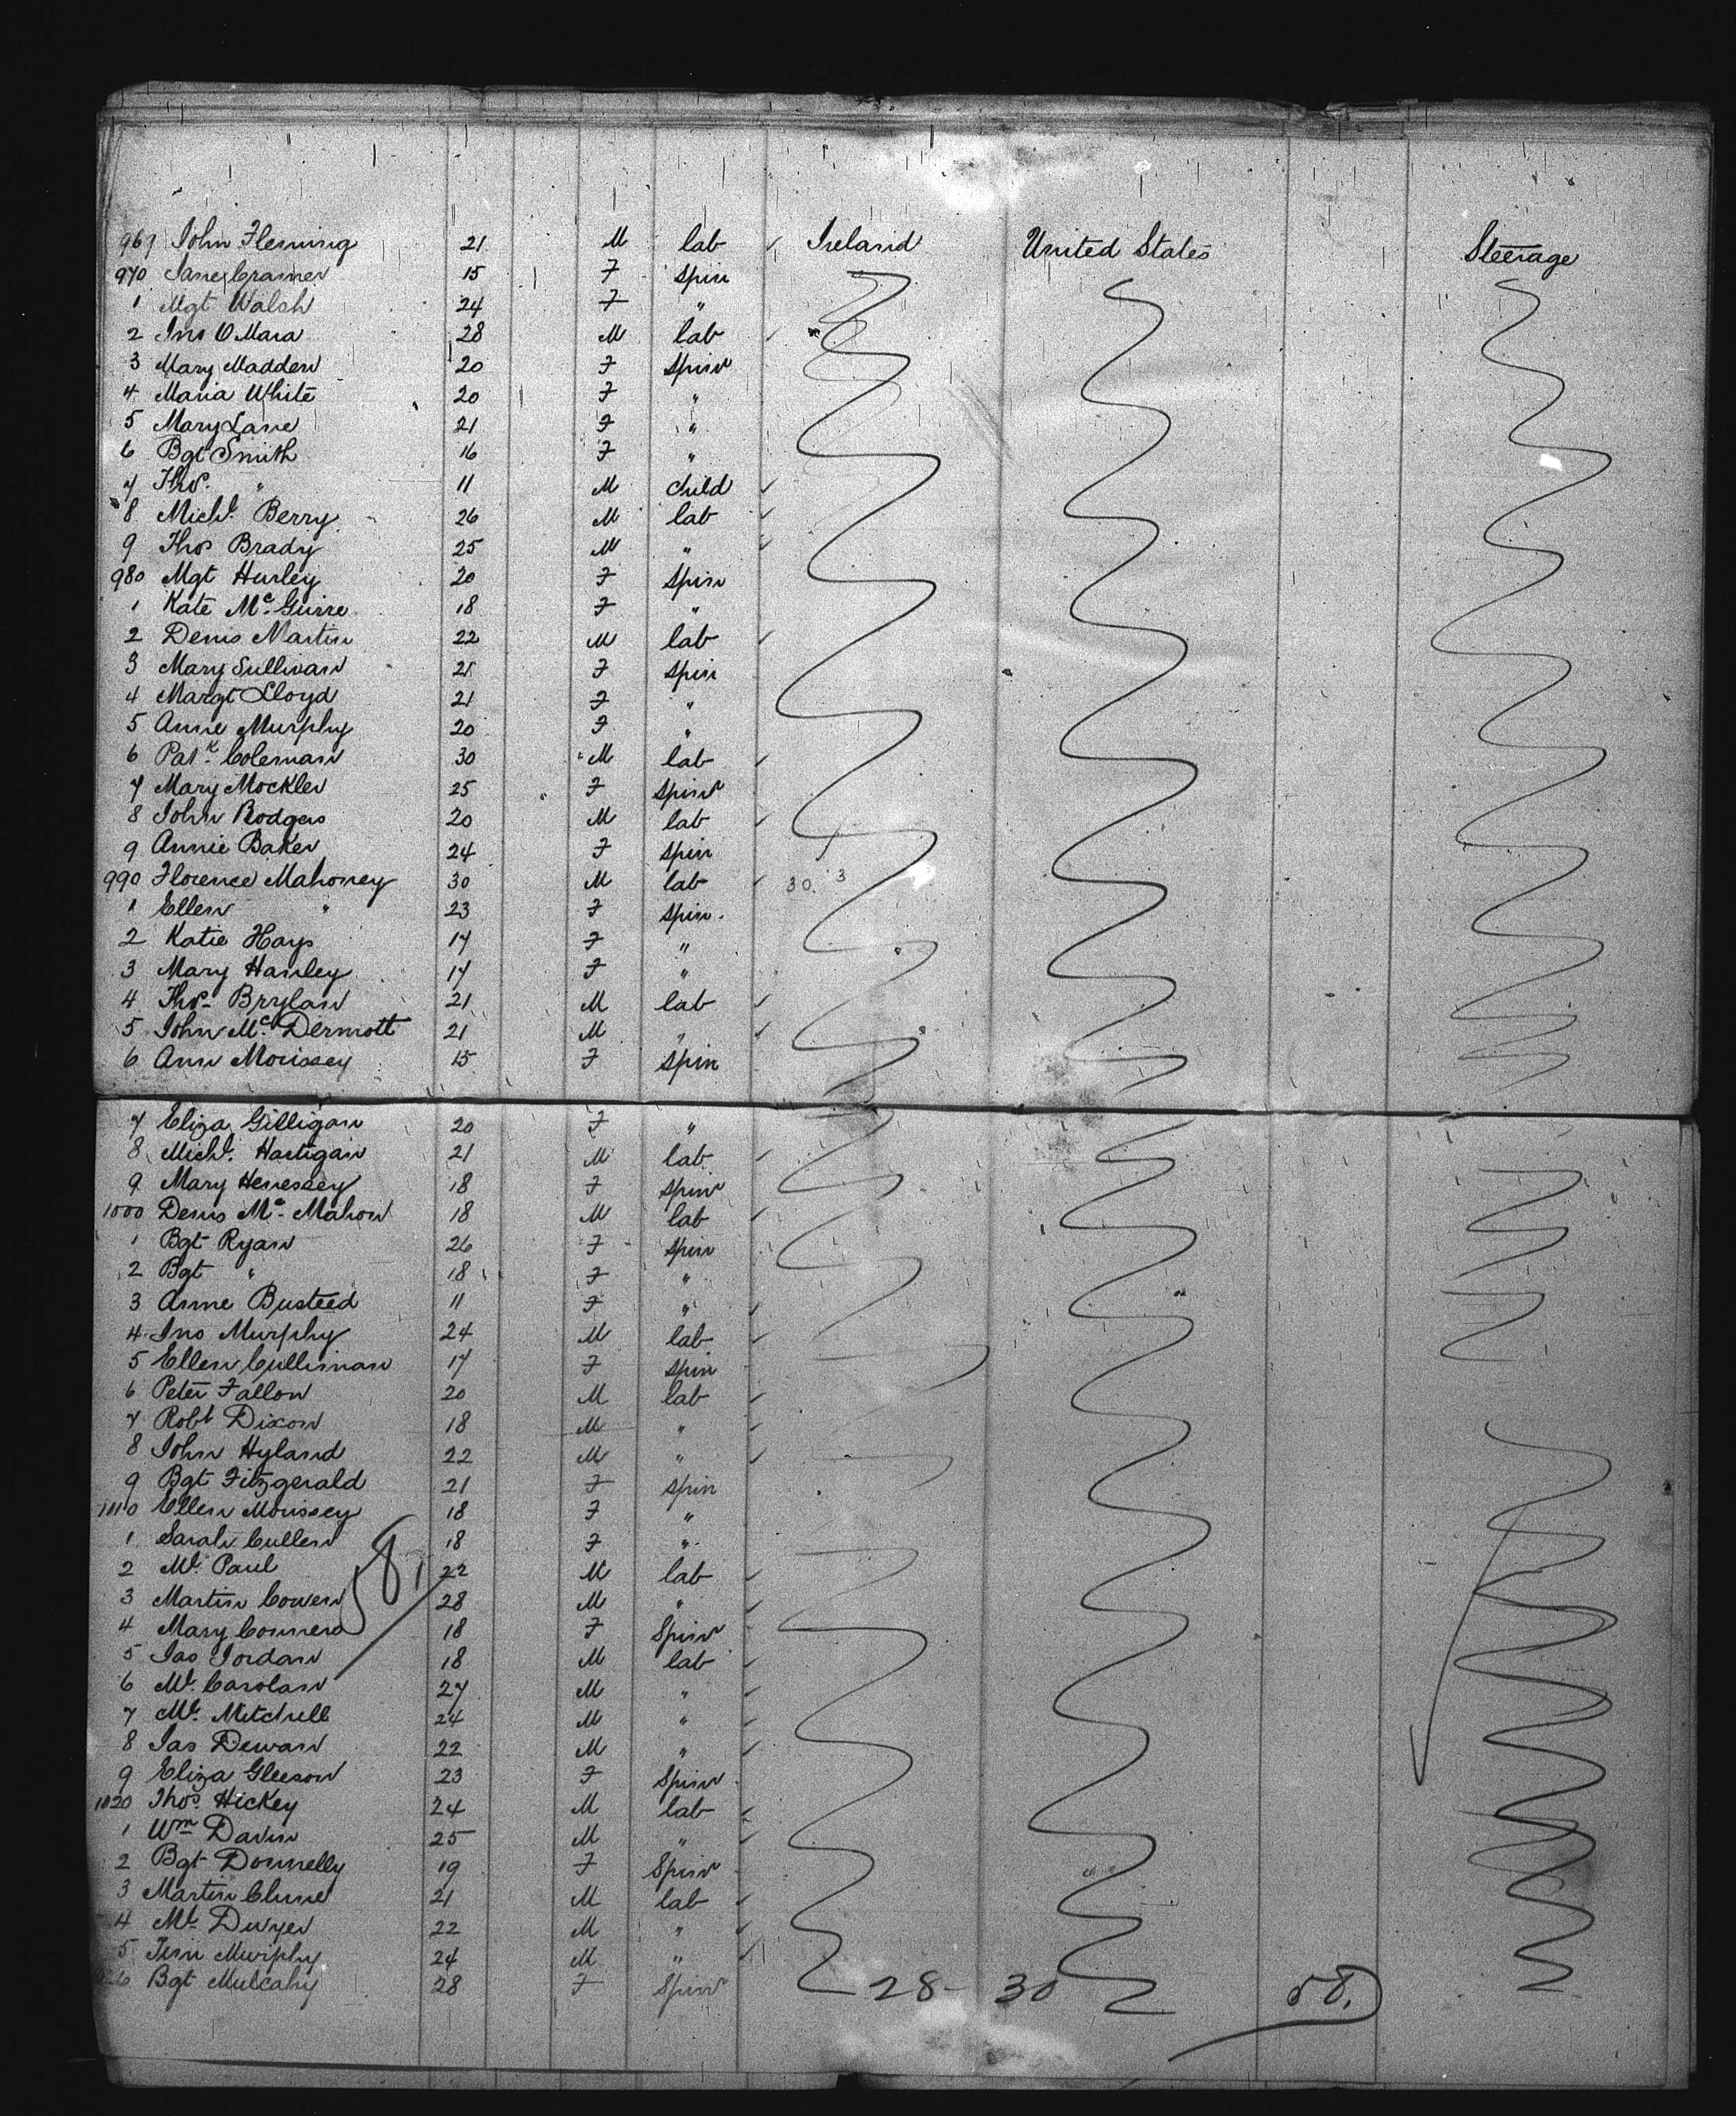 969 John Fleming 21 M lab ✓ Ireland United States Steerage
970 Jane Cramer 15 F spin
1 Mgt Walsh 24 F "
2 Jno O Mara 28 M lab ✓
3 Mary Madden 20 F spin
4 Maria White 20 F "
5 Mary Lane 21 F "
6 Bgt Smith 16 F "
7 Thos. " 11 M child ✓
8 Michl. Berry 26 M lab ✓
9 Thos Brady 25 M " ✓
980 Mgt Hurley 20 F spin
1 Kate Mc. Guire 18 F "
2 Denis Martin 22 M lab ✓
3 Mary Sullivan 21 F spin
4 Margt Lloyd 21 F "
5 Anne Murphy 20 F "
6 Patk. Coleman 30 M lab ✓
7 Mary Mockler 25 F spin
8 John Rodgers 20 M lab ✓
9 Annie Baker 24 F spin
990 Florence Mahoney 30 M lab ✓ 30. 3
1 Ellen " 23 F spin.
2 Katie Hays 17 F "
3 Mary Hanley 17 F "
4 Thos. Brylan 21 M lab ✓
5 John Mc. Dermott 21 M " ✓
6 Ann Morissey 15 F spin
7 Eliza Gilligan 20 F "
8 Michl. Hartigan 21 M lab ✓
9 Mary Henessey 18 F spin
1000 Denis Mc. Mahon 18 M lab ✓
1 Bgt Ryan 26 F spin
2 Bgt " 18 F "
3 Anne Busteed 11 F " ✓
4 Jno Murphy 24 M lab ✓
5 Ellen Cullinan 17 F spin
6 Peter Fallon 20 M lab ✓
7 Robt Dixon 18 M " ✓
8 John Hyland 22 M " ✓
9 Bgt Fitzgerald 21 F spin
1010 Ellen Morissey 18 F "
1 Sarah Cullen 18 F "
2 Ml. Paul 22 M lab ✓
3 Martin Cowen 28 M " ✓
4 Mary Conners 18 F Spin
5 Jas Jordan 18 M lab ✓
6 Ml. Carolan 27 M " ✓
7 Ml. Mitchell 24 M " ✓
8 Jas Dewan 22 M " ✓
9 Eliza Gleeson 23 F Spin
1020 Thos. Hickey 24 M lab ✓
1 Wm Davin 25 M " ✓
2 Bgt Donnelly 19 F Spin
3 Martin Clune 21 M lab ✓
4 Ml. Dwyer 22 M " ✓
5 Tim Murphy 24 M " ✓
6 Bgt Mulcahy 28 F Spin
28 - 30 58.